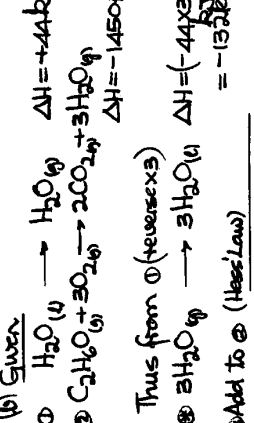 (b) Given
① H₂O(l) → H₂O(g) ΔH=+44k
② C₂H₆O(g) + 3O₂(g) → 2CO₂(g) + 3H₂O(g)
ΔH=-1450
Thus from ① (reverse x3)
3H₂O(g) → 3H₂O(l) ΔH=(-44x3
=-132k
Add to ② (Hess' Law)